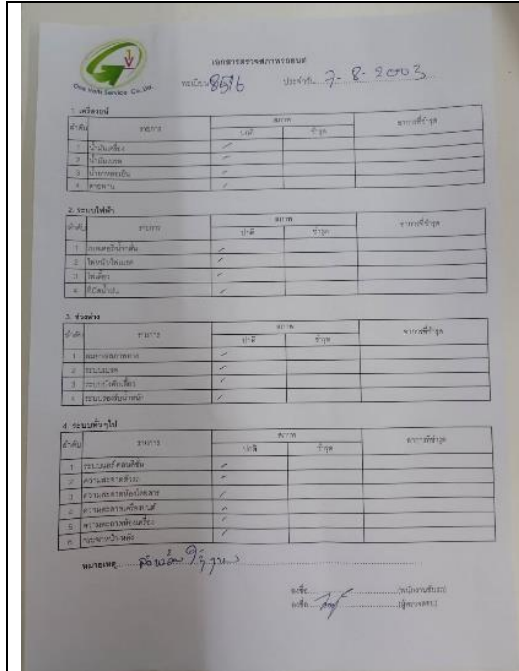 One Vehi Service Co.,Ltd.
เอกสารตรวจสภาพรถยนต์
ทะเบียน 8516 ประจำวัน 7-8-2003
1. เครื่องยนต์
ลำดับ รายการ สภาพ อาการที่ชำรุด
ปกติ ชำรุด
1 น้ำมันเครื่อง /
2 น้ำมันเบรค /
3 น้ำยาหล่อเย็น /
4 สายพาน /
2. ระบบไฟฟ้า
ลำดับ รายการ สภาพ อาการที่ชำรุด
ปกติ ชำรุด
1 /
2 ไฟหน้า/ไฟเบรค /
3 ไฟเลี้ยว /
4 ที่ปัดน้ำฝน /
3. ช่วงล่าง
ลำดับ รายการ สภาพ อาการที่ชำรุด
ปกติ ชำรุด
1 /
2 ระบบเบรค /
3 ระบบบังคับเลี้ยว /
4 ระบบรองรับน้ำหนัก /
4. ระบบทั่วๆไป
ลำดับ รายการ สภาพ อาการที่ชำรุด
ปกติ ชำรุด
1 ระบบแอร์คอนดิชั่น /
2 ความสะอาดตัวรถ /
3 ความสะอาดห้องโดยสาร /
4 ความสะอาดเครื่องยนต์ /
5 /
6 /
หมายเหตุ
ลงชื่อ (พนักงานขับรถ)
ลงชื่อ (ผู้ตรวจสอบ)